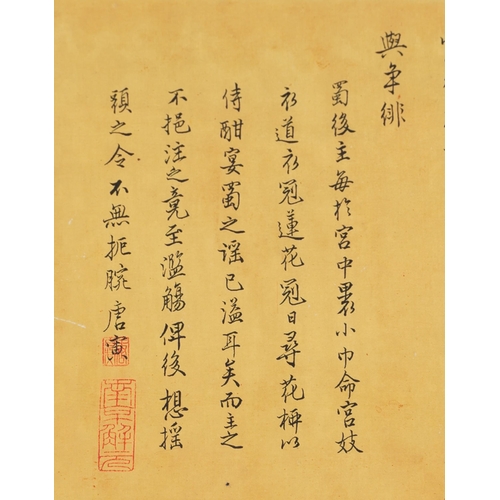 與爭緋
蜀後主每於宮中裹小巾命宮妓
衣道衣冠蓮花冠日尋花柳以
侍酣宴蜀之謠已溢耳矣而主之
不挹注之竟至濫觴俾後想搖
頞之令不無扼腕唐寅
南京解元